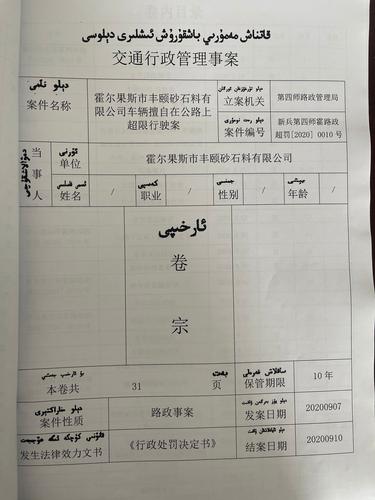 قاتناش مەمۇرىي باشقۇرۇش ئىشلىرى دېلوسى
交通行政管理事案
دېلو نامى
案件名称
霍尔果斯市丰颐砂石料有
限公司车辆擅自在公路上
超限行驶案
立案机关
第四师路政管理局
案件编号
新兵第四师霍路政
超罚[2020] 0010 号
当事人
ئورنى
单位
霍尔果斯市丰颐砂石料有限公司
姓名
/
كەسپى
职业
/
جىنسى
性别
/
يېشى
年龄
/
ئارخىپى
卷
宗
بەت
本卷共
31
页
ساقلاش مەزگىلى
保管期限
10 年
案件性质
路政事案
发案日期
20200907
发生法律效力文书
《行政处罚决定书》
结案日期
20200910